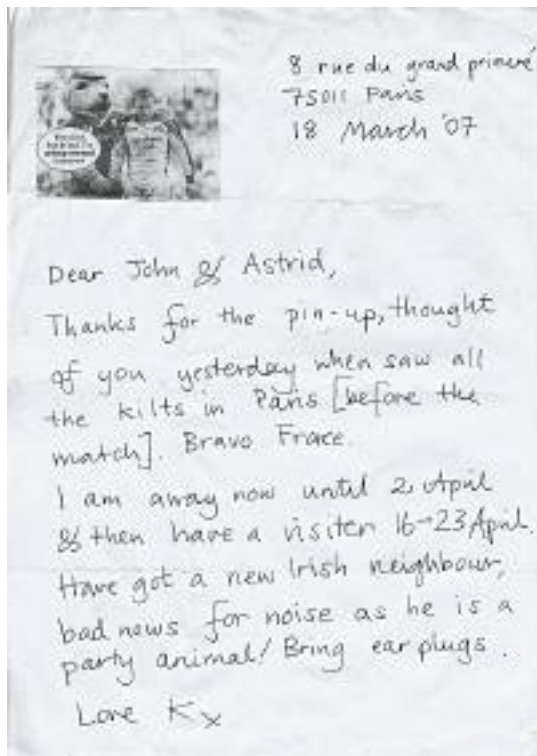 8 rue du grand prieuré
75011 Paris
18 March '07
Dear John & Astrid,
Thanks for the pin-up, thought
of you yesterday when saw all
the kilts in Paris [before the
match]. Bravo Frace.
I am away now until 2 April
& then have a visiter 16→23 April.
Have got a new Irish neighbour,
bad news for noise as he is a
party animal! Bring ear plugs.
Love Kx